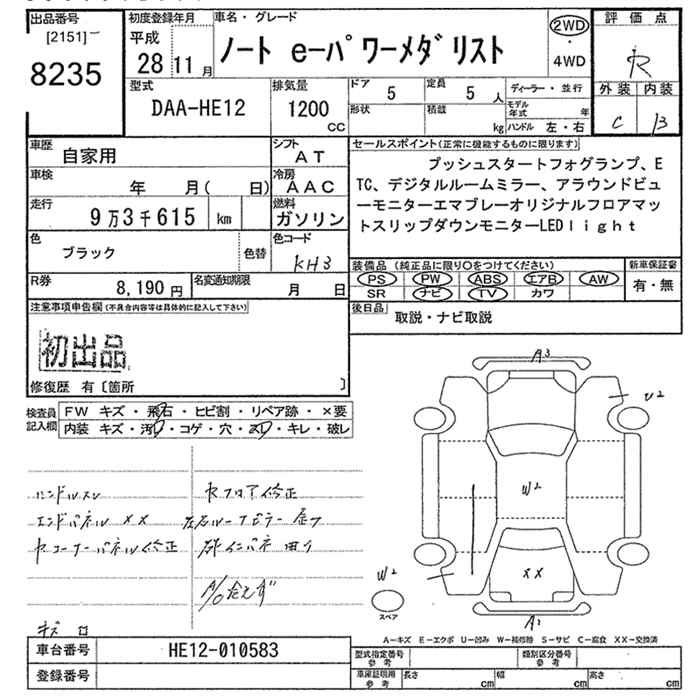 出品番号
[2151]
8235
初度登録年月
平成
28 11月
車名・グレード
ノート e-パワーメダリスト
2WD
・
4WD
評価点
R
外装 内装
C B
型式
DAA-HE12
排気量
1200
CC
ドア
5
定員
5人
形状
積載
kg
ディーラー・並行
モデル年式 年
ハンドル 左・右
車歴
自家用
シフト
AT
車検
年 月( 日)
冷房
AAC
走行
9万3千615 km
燃料
ガソリン
色
ブラック
色替
色コード
KH3
R券
8,190円
名変通知期限
月 日
セールスポイント(正常に機能するものに限ります)
プッシュスタートフォグランプ、E
TC、デジタルルームミラー、アラウンドビュ
ーモニターエマブレーオリジナルフロアマッ
トスリップダウンモニターLEDlight
装備品(純正品に限り○をつけてください)
新車保証書
PS PW ABS エアB AW
SR ナビ TV カワ
有・無
後日品
取説・ナビ取説
注意事項申告欄(不具合内容等は具体的に記入して下さい)
初出品
修復歴 有〔箇所 〕
検査員記入欄
FW キズ・飛石・ヒビ割・リペア跡・×要
内装 キズ・汚れ・コゲ・穴・スレ・キレ・破レ
ハンドルスレ
エンドパネル XX
セフロア修正
キズ
A3
U2
W2
W2
XX
A2
スペア
A-キズ E-エクボ U-凹み W-補修跡 S-サビ C-腐食 XX-交換済
車台番号
HE12-010583
登録番号
型式指定番号
参考
類別区分番号
参考
車庫証明用
参考
長さ cm
幅 cm
高さ cm